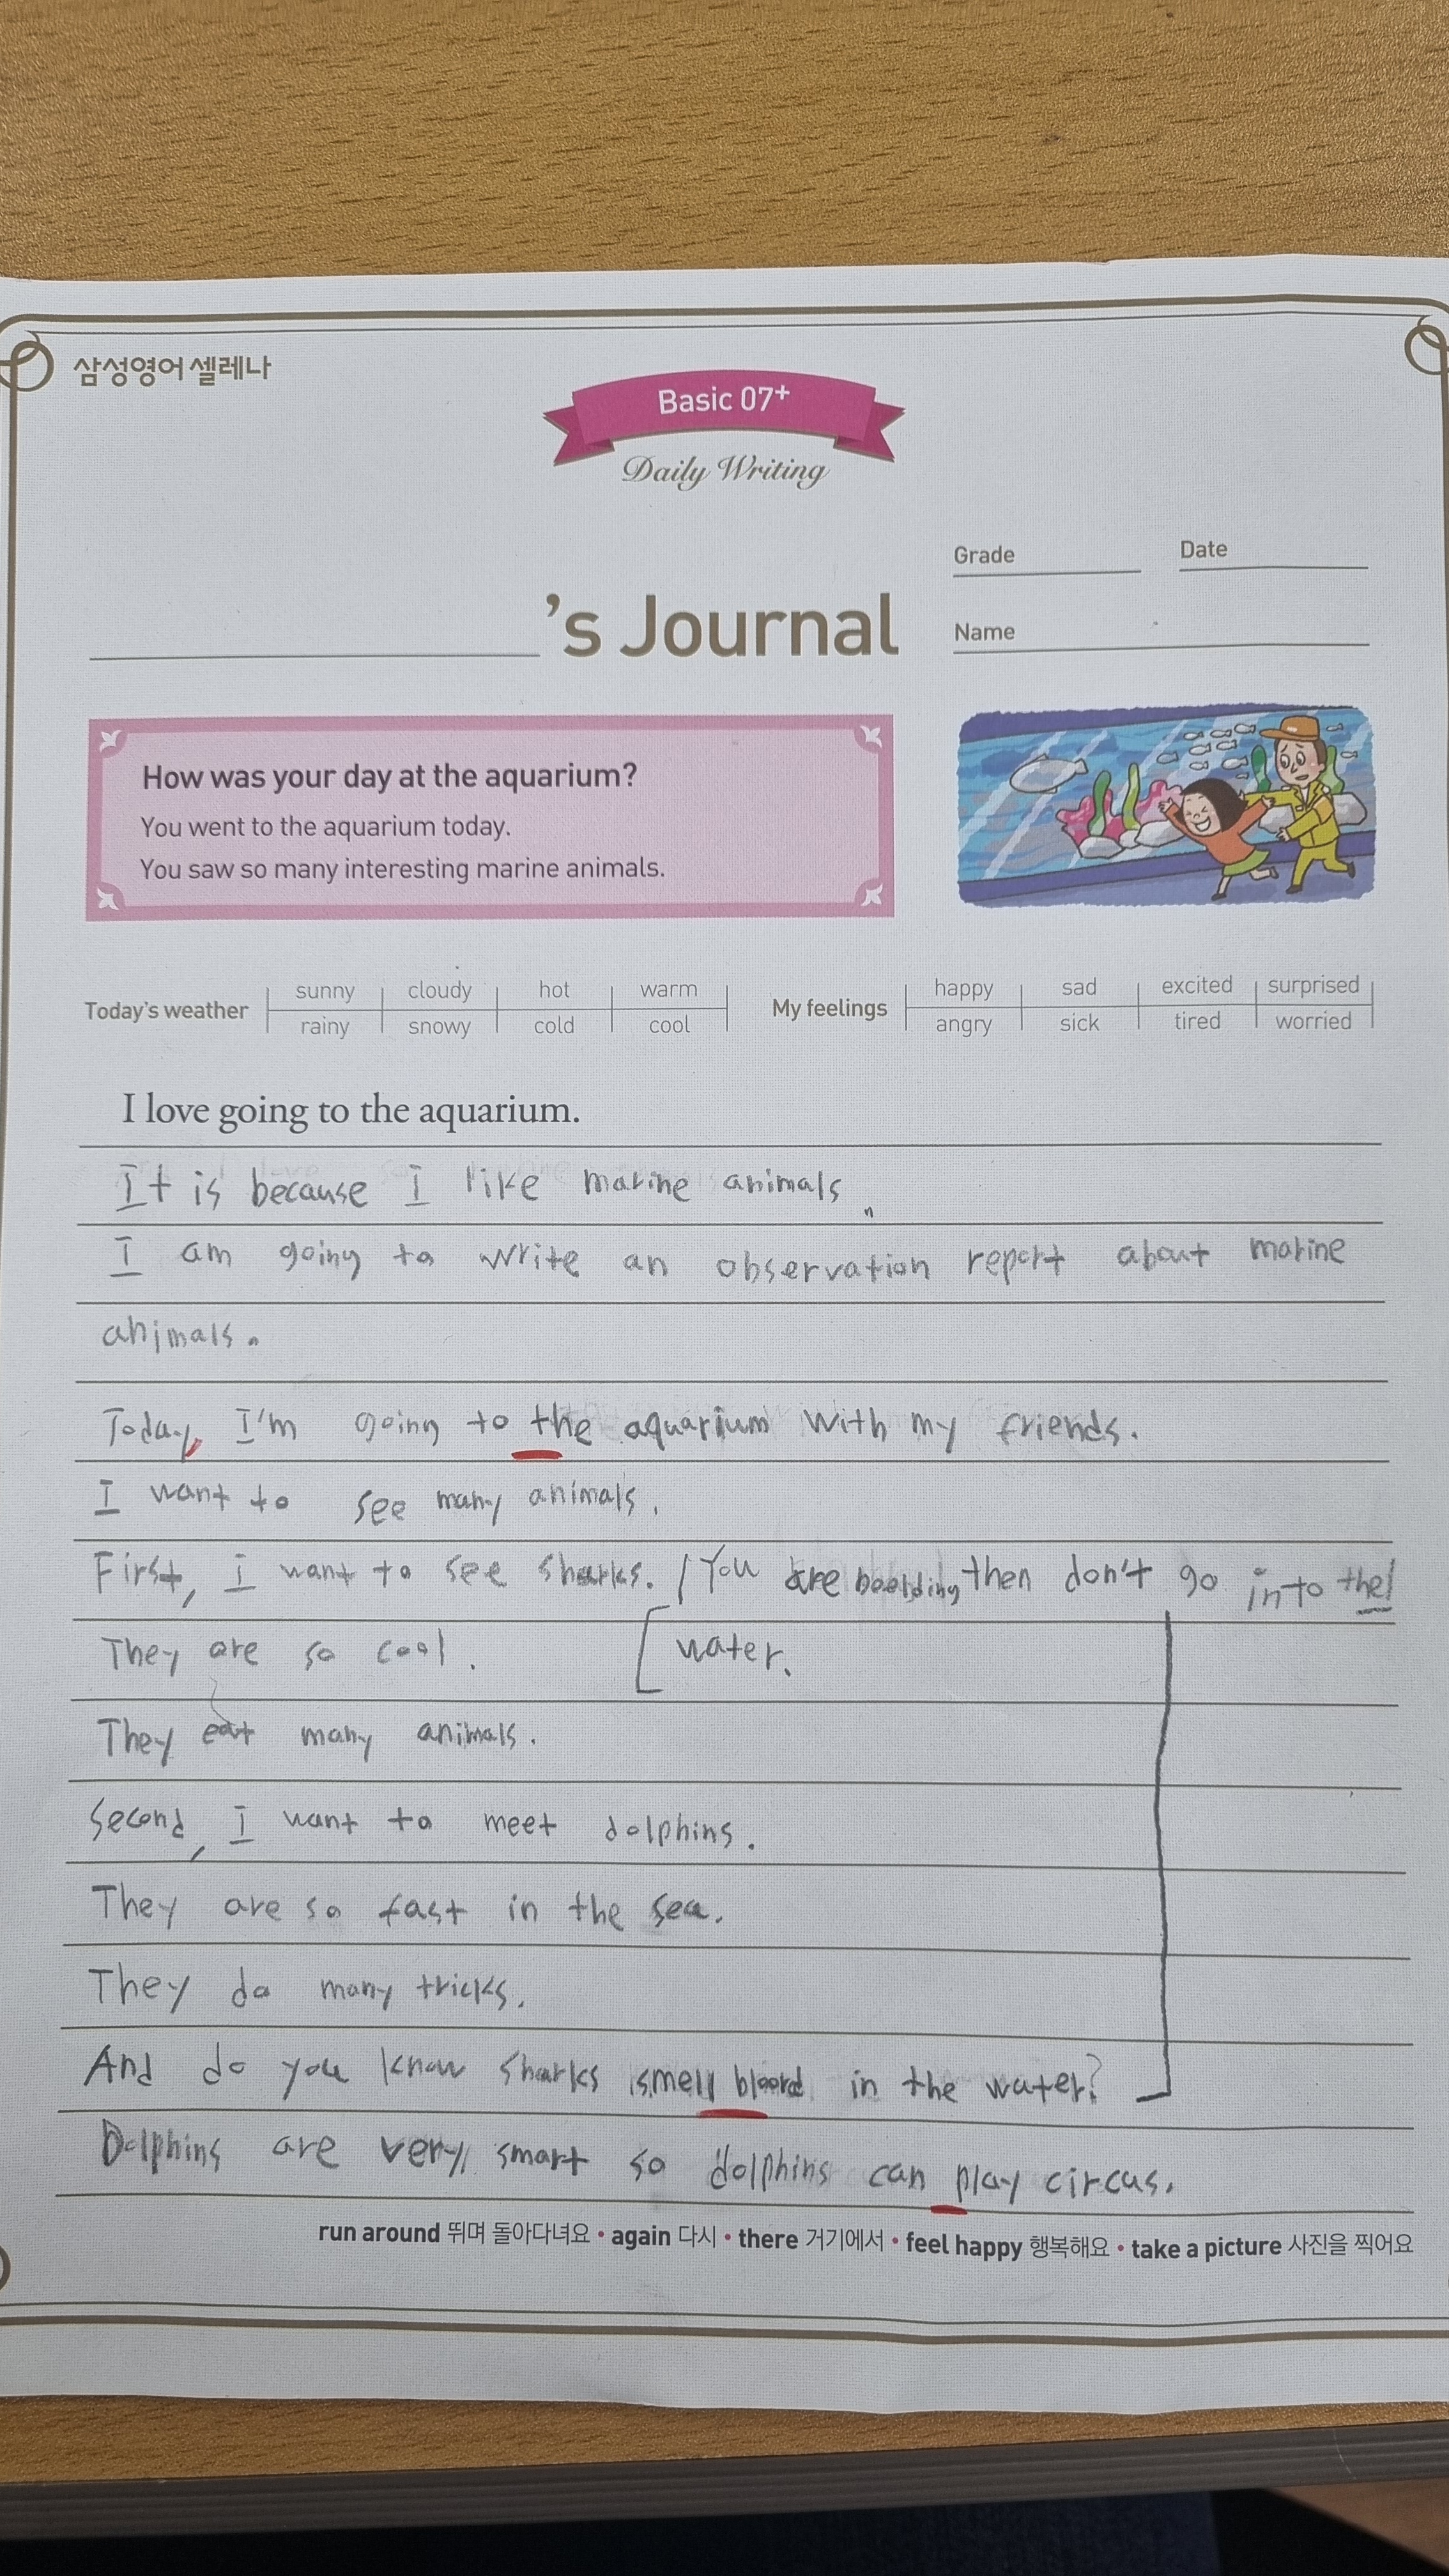 삼성영어 셀레나
Basic 07+
Daily Writing
Grade
Date
's Journal
Name
How was your day at the aquarium?
You went to the aquarium today.
You saw so many interesting marine animals.
Today's weather
sunny cloudy hot warm
rainy snowy cold cool
My feelings
happy sad excited surprised
angry sick tired worried
I love going to the aquarium.
It is because I like marine animals.
I am going to write an observation report about marine
animals.
Today, I'm going to the aquarium with my friends.
I want to see many animals.
First, I want to see sharks. / You are then don't go into the
They are so cool. [ water.
They eat many animals.
Second, I want to meet dolphins.
They are so fast in the sea.
They do many tricks.
And do you know sharks smell in the water?
Dolphins are very smart so dolphins can play circus.
run around 뛰며 돌아다녀요 • again 다시 • there 거기에서 • feel happy 행복해요 • take a picture 사진을 찍어요